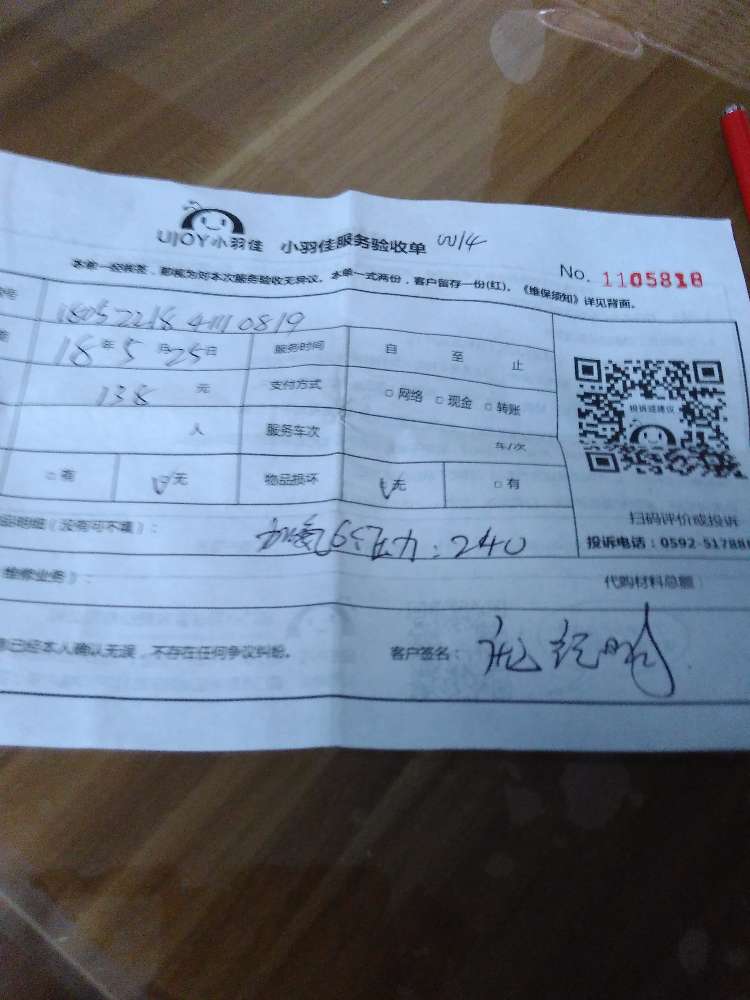 UJOY小羽佳 小羽佳服务验收单 W14
No. 1105818
本单一经签签,都视为对本次服务验收无异议。本单一式两份,客户留存一份(红)。《维保须知》详见背面。
号
18年5月25日 服务时间 自 至 止
138元 支付方式 □网络 □现金 □转账
人 服务车次 车/次
□有 无 物品损坏 无 □有
投诉或建议
扫码评价或投诉
投诉电话:0592-51788
明细(没有可不填): 加氟 压力:240
维修业务): 代购材料总额
已经本人确认无误,不存在任何争议纠纷。 客户签名: